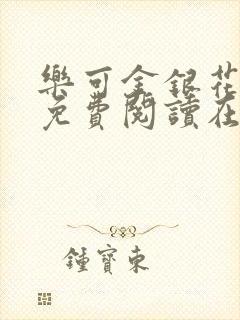 樂可金銀花
免費閱讀在
鍾寶東